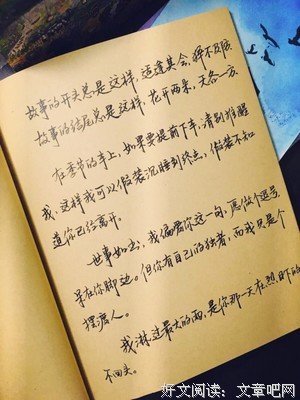 故事的开头总是这样,适逢其会,猝不及防
故事的结尾总是这样,花开两朵,天各一方.
在季节的车上,如果要提前下车,请别推醒
我,这样我可以假装沉睡到终点,假装不知
道你已经离开。
世事如书,我偏爱你这一句,愿做个逗号,
呆在你脚边。但你有自己的独者,而我只是个
摆渡人。
我淋过最大的雨,是你那一天在烈日下的
不回头。
好文阅读: 文章吧网